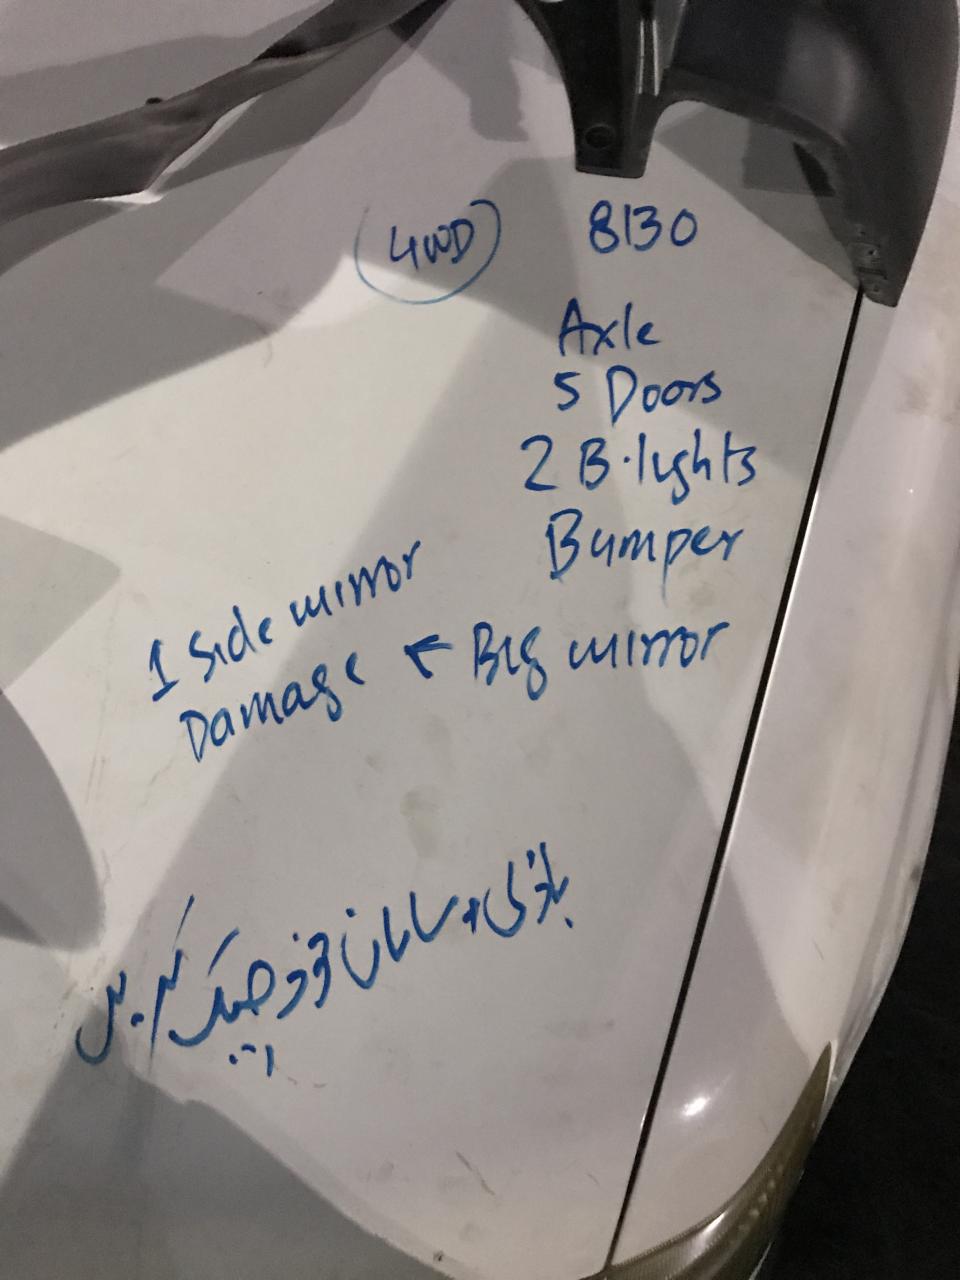 4WD 8130
Axle
5 Doors
2 B.lights
Bumper
1 Side mirror
Damage ← Big mirror
سامان